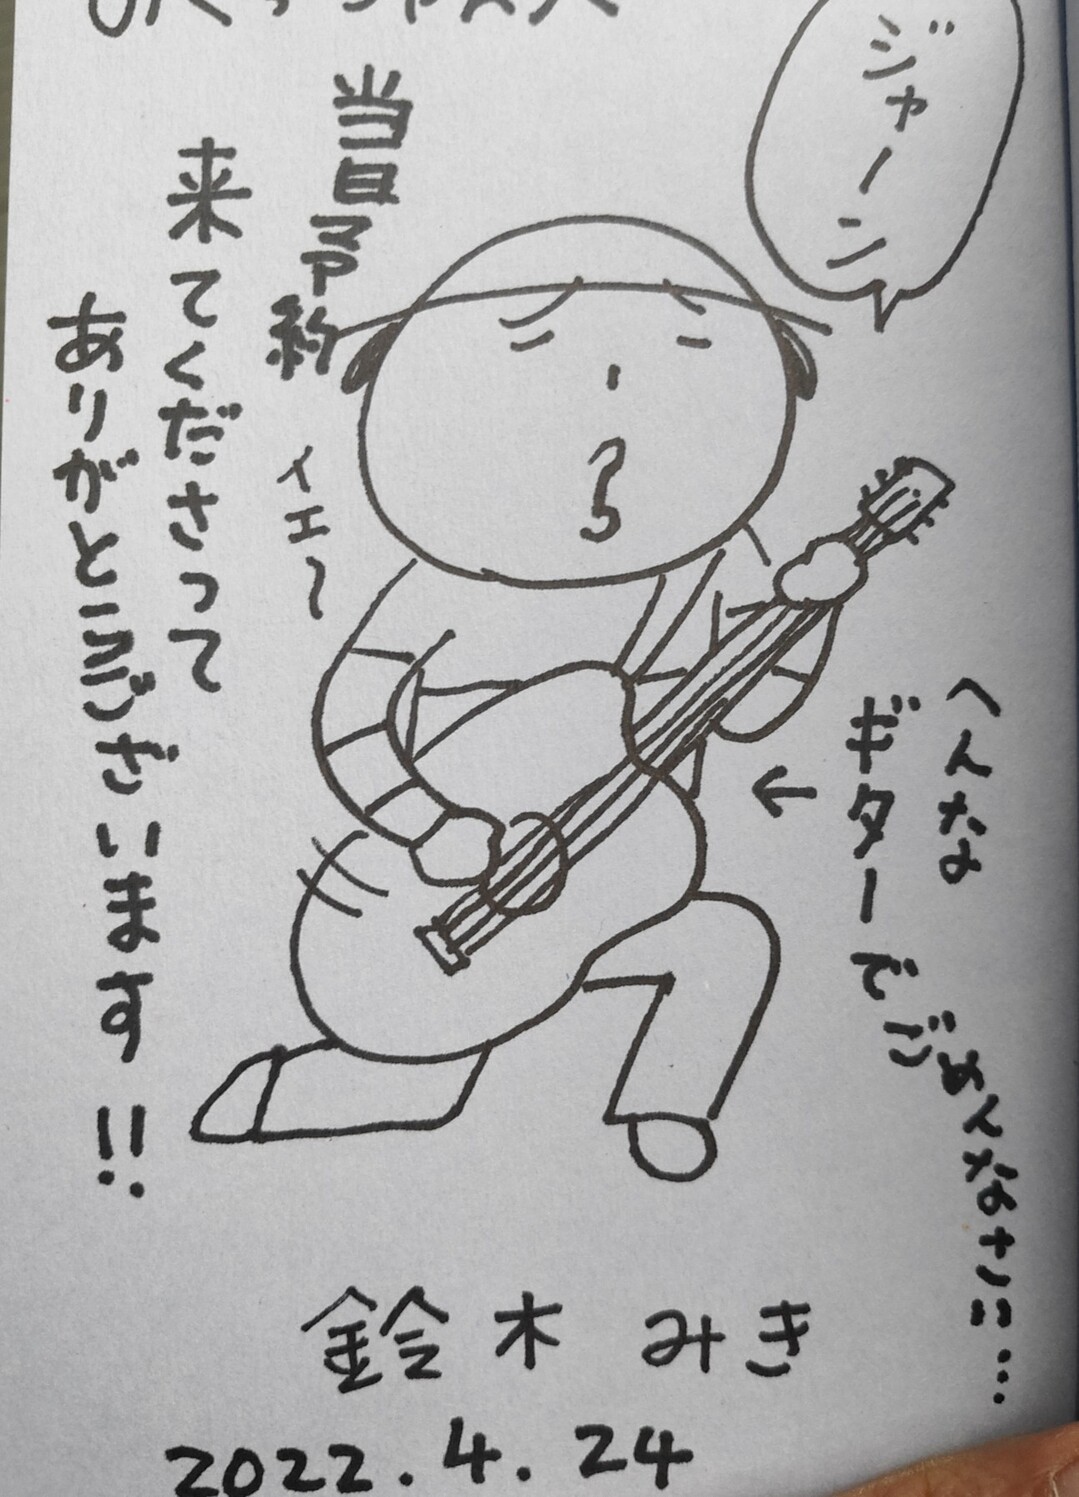 ジャーン
当日予約
来てくださって
ありがとうございます!!
イエ〜
へんな
ギターで
ごめんなさい…
←
鈴木 みき
2022.4.24